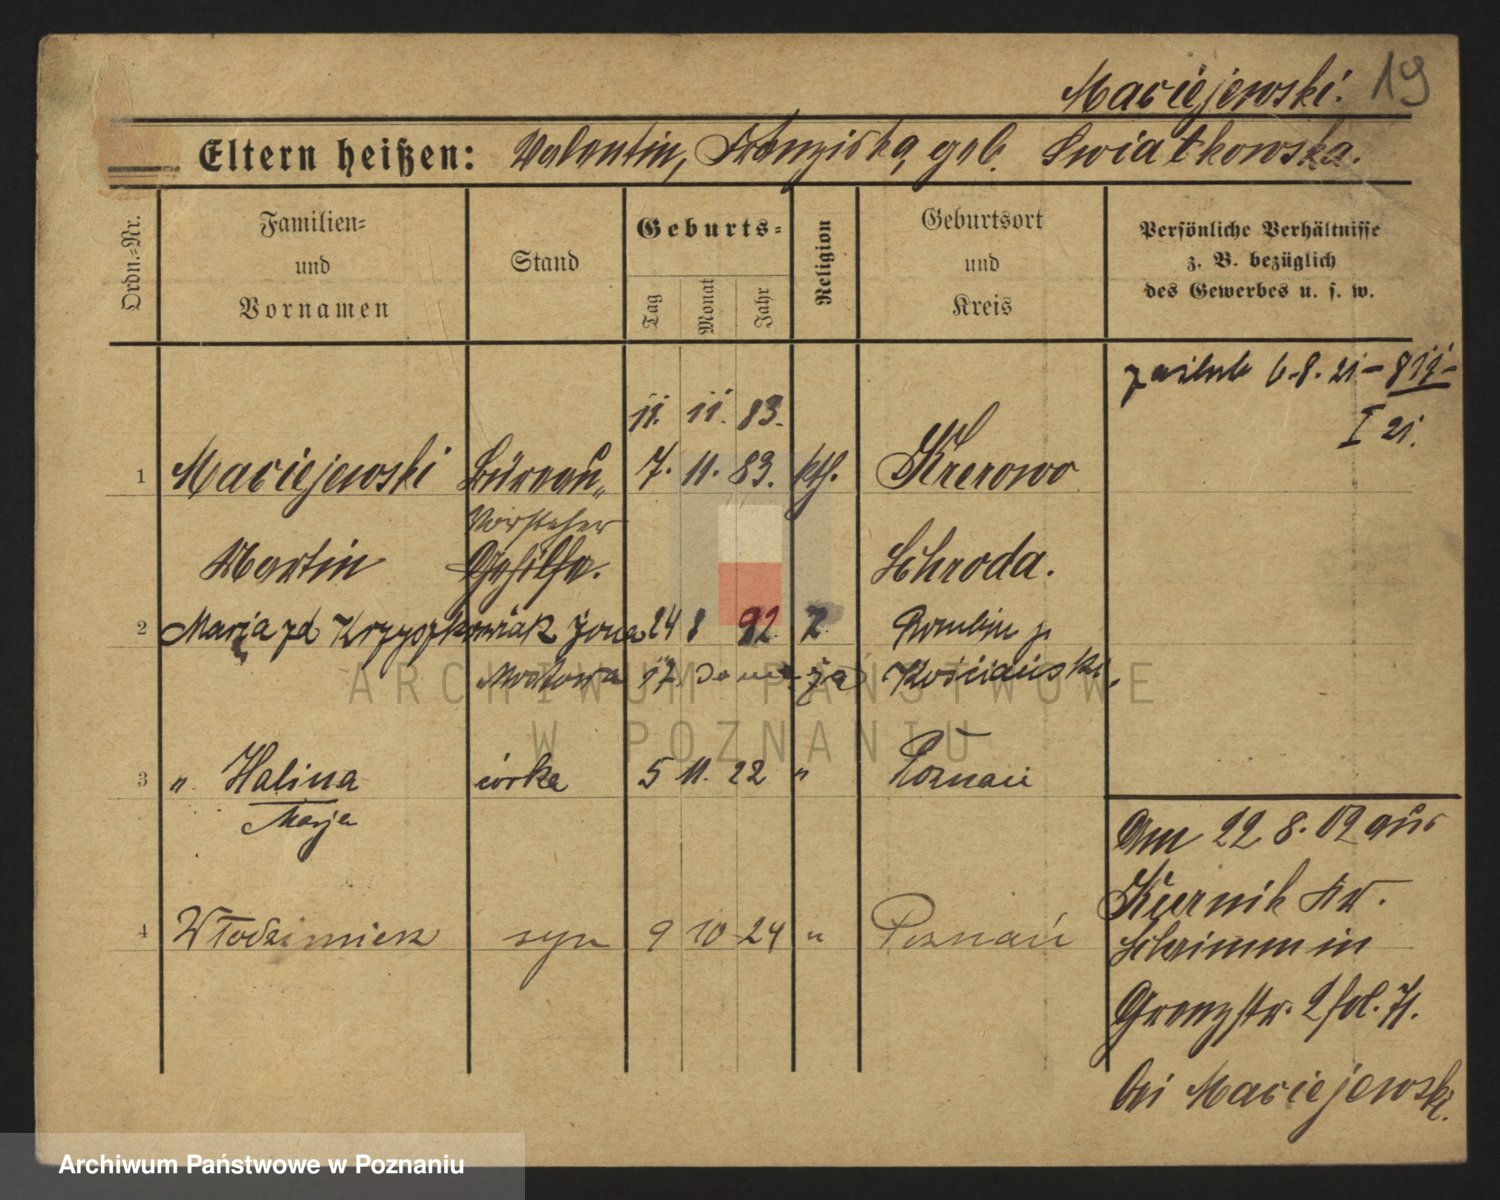 Maciejewski. 19
Eltern heißen: Valentin, Franziska, geb. Swiatkowska.
Ordn.-Nr.
Familien-
und
Vornamen
Stand
Geburts-
Tag
Monat
Jahr
Religion
Geburtsort
und
Kreis
Persönliche Verhältnisse
z. B. bezüglich
des Gewerbes u. s. w.
zaślub 6.8.21 -
I 21.
11. 11. 83.
1 Maciejewski Büreau- 7. 11. 83. kth. Krerowo
Vorsteher
Martin Gehilfe. Schroda.
2 Maria zd Krzyszkowiak żona 24 8 92
Kościański
3 " Halina córka 5 11. 22 " Poznań
Marja
4 Włodzimierz syn 9 10 24 " Poznań
Am 22.8.02 aus
Kurnik Kr.
Schrimm in
Grenzstr. 2 fol. 71.
bei Maciejewski.
ARCHIWUM PAŃSTWOWE
W POZNANIU
Archiwum Państwowe w Poznaniu